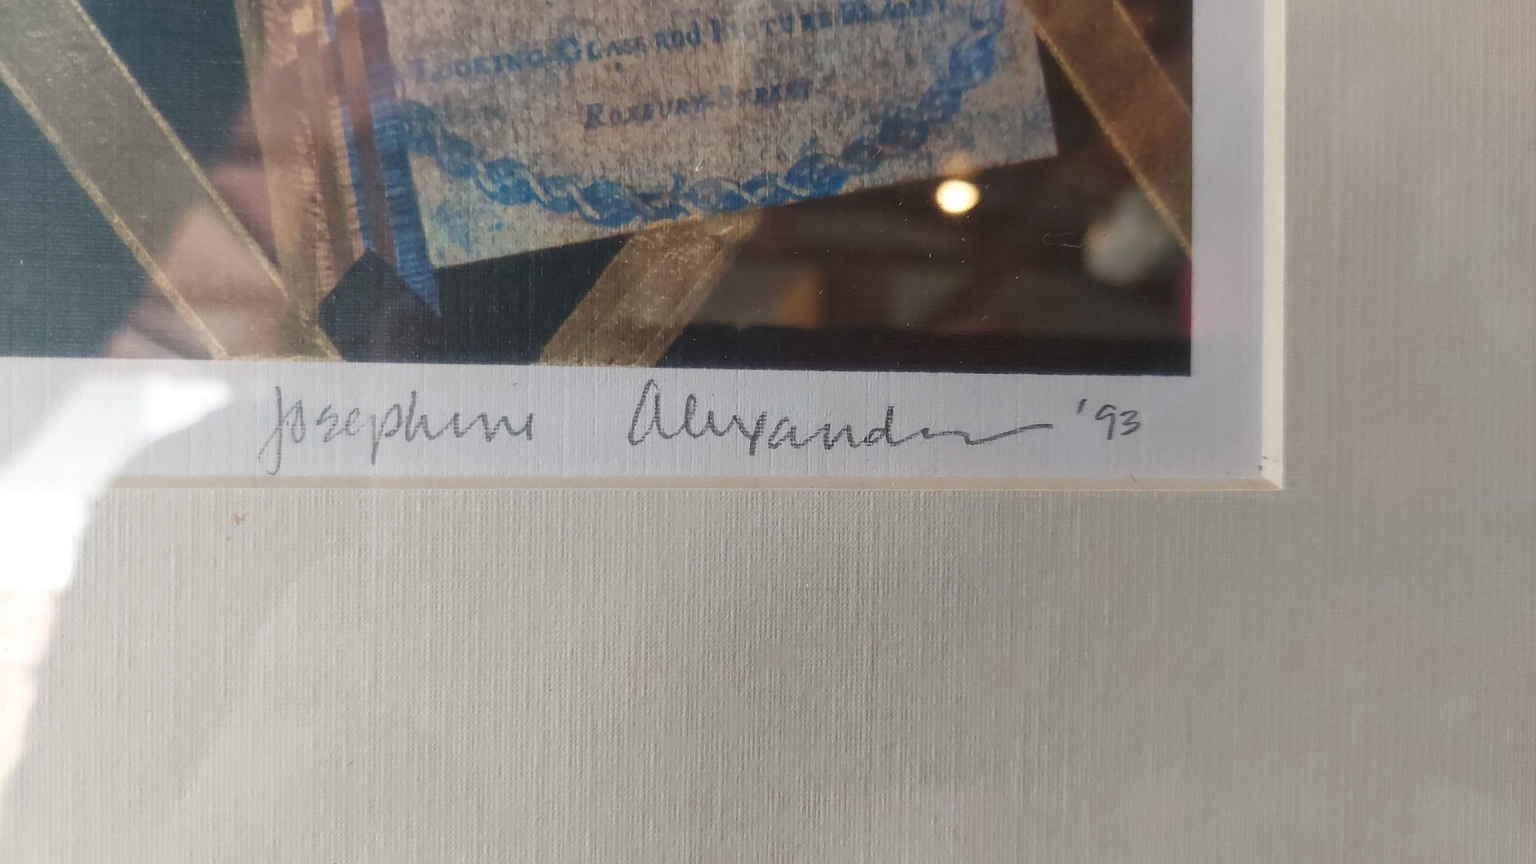 Looking-Glass and Picture
Roxbury-Street
Josephine Alexander '93